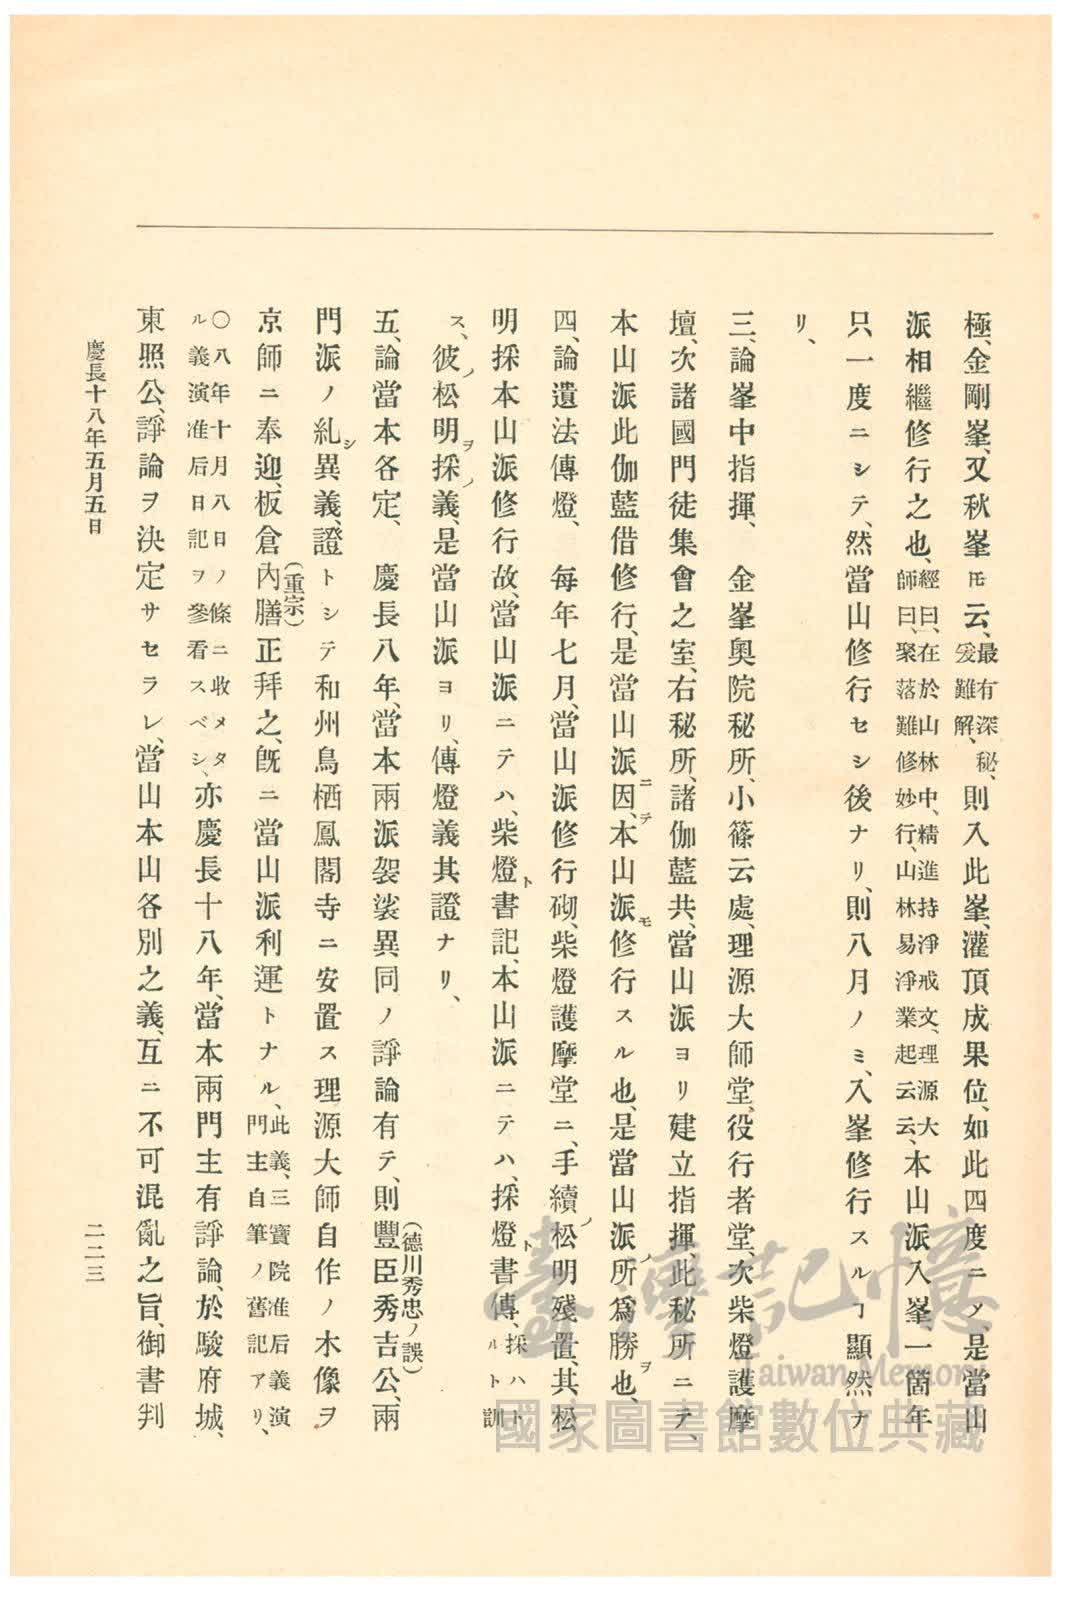 極、金剛峯、又秋峯𪜈云、最有深秘、爰難解、則入此峯、灌頂成果位、如此四度ニメ、是當山
派相繼修行之也、經曰、在於山林中、精進持淨戒文、理源大師曰、聚落難修妙行、山林易淨業起云云、本山派入峯、一箇年
只一度ニシテ、然當山修行セシ後ナリ、則八月ノミ、入峯修行スルヿ顯然ナ
リ、
三、論峯中指揮、　金峯奧院秘所、小篠云處、理源大師堂、役行者堂、次柴燈護摩
壇、次諸國門徒集會之室、右秘所、諸伽藍共、當山派ヨリ建立指揮、此秘所ニテ、
本山派此伽藍借修行、是當山派因ニテ、本山派モ修行スル也、是當山派ノ所爲勝ヲ也、
四、論遺法傳燈、　每年七月、當山派修行砌、柴燈護摩堂ニ、手續ノ松明殘置、其松
明採本山派修行故、當山派ニテハ、柴燈ト書記、本山派ニテハ、採燈ト書傳、採ハトルト訓
ス、彼ノ松明ヲ採ノ義、是當山派ヨリ、傳燈義其證ナリ、
五、論當本各定、　慶長八年、當本兩派袈裟異同ノ諍論有テ、則豐臣秀吉公、(德川秀忠ノ誤)兩
門派ノ糺シ異義、證トシテ和州鳥栖鳳閣寺ニ安置ス理源大師自作ノ木像ヲ
京師ニ奉迎、板倉內膳正(重宗)拜之、既ニ當山派利運トナル、此義、三寶院准后義演門主自筆ノ舊記アリ、
○八年十月八日ノ條ニ收メタル義演准后日記ヲ參看スベシ、亦慶長十八年、當本兩門主有諍論、於駿府城、
東照公、諍論ヲ決定サセラレ、當山本山各別之義、互ニ不可混亂之旨、御書判
慶長十八年五月五日
二二三
臺灣記憶
Taiwan Memory
國家圖書館數位典藏